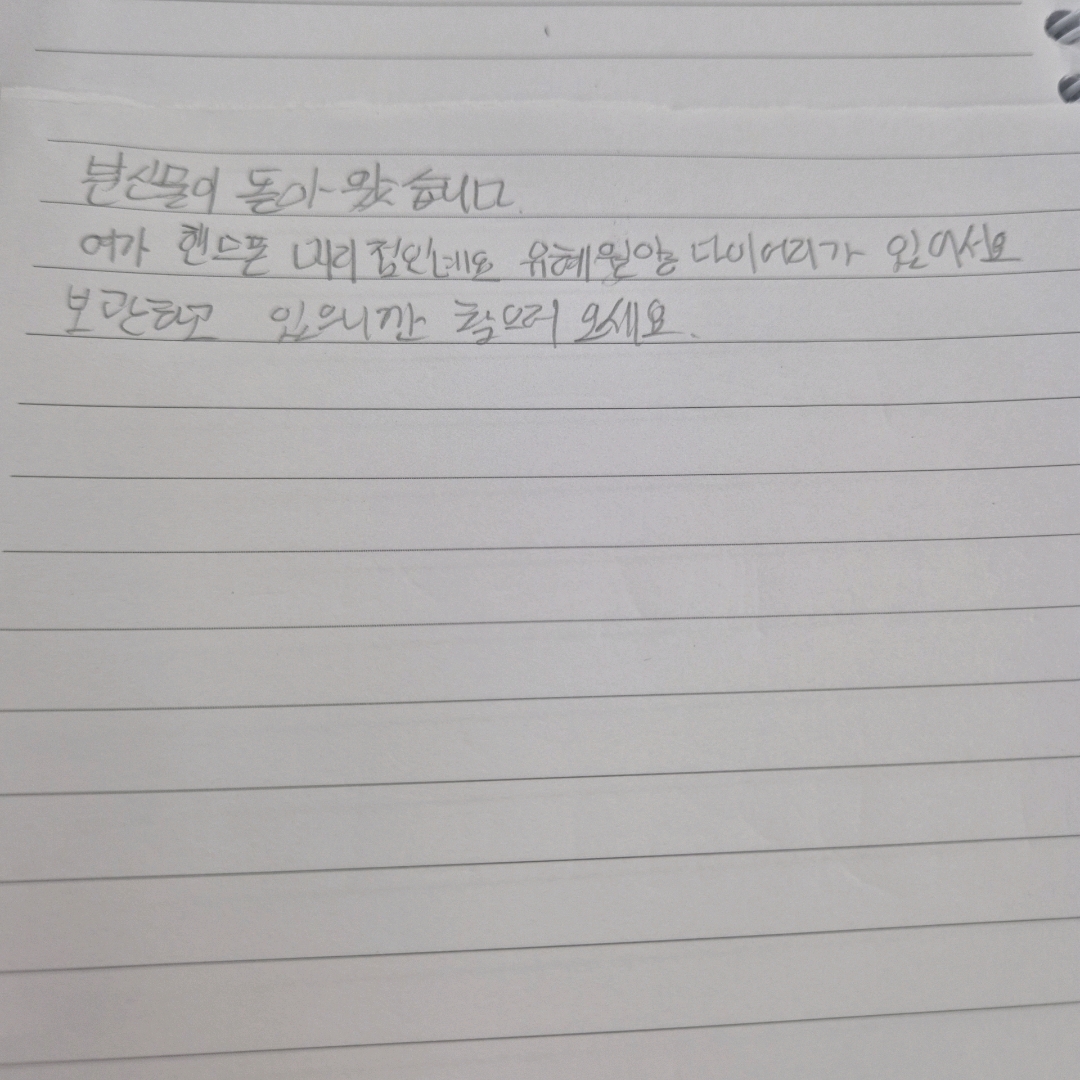 분신물이 돌아 왔습니다.
여가 핸드폰 대리점인데요 유혜원양 다이어리가 있어서요
보관하고 있으니깐 찾으러 오세요.